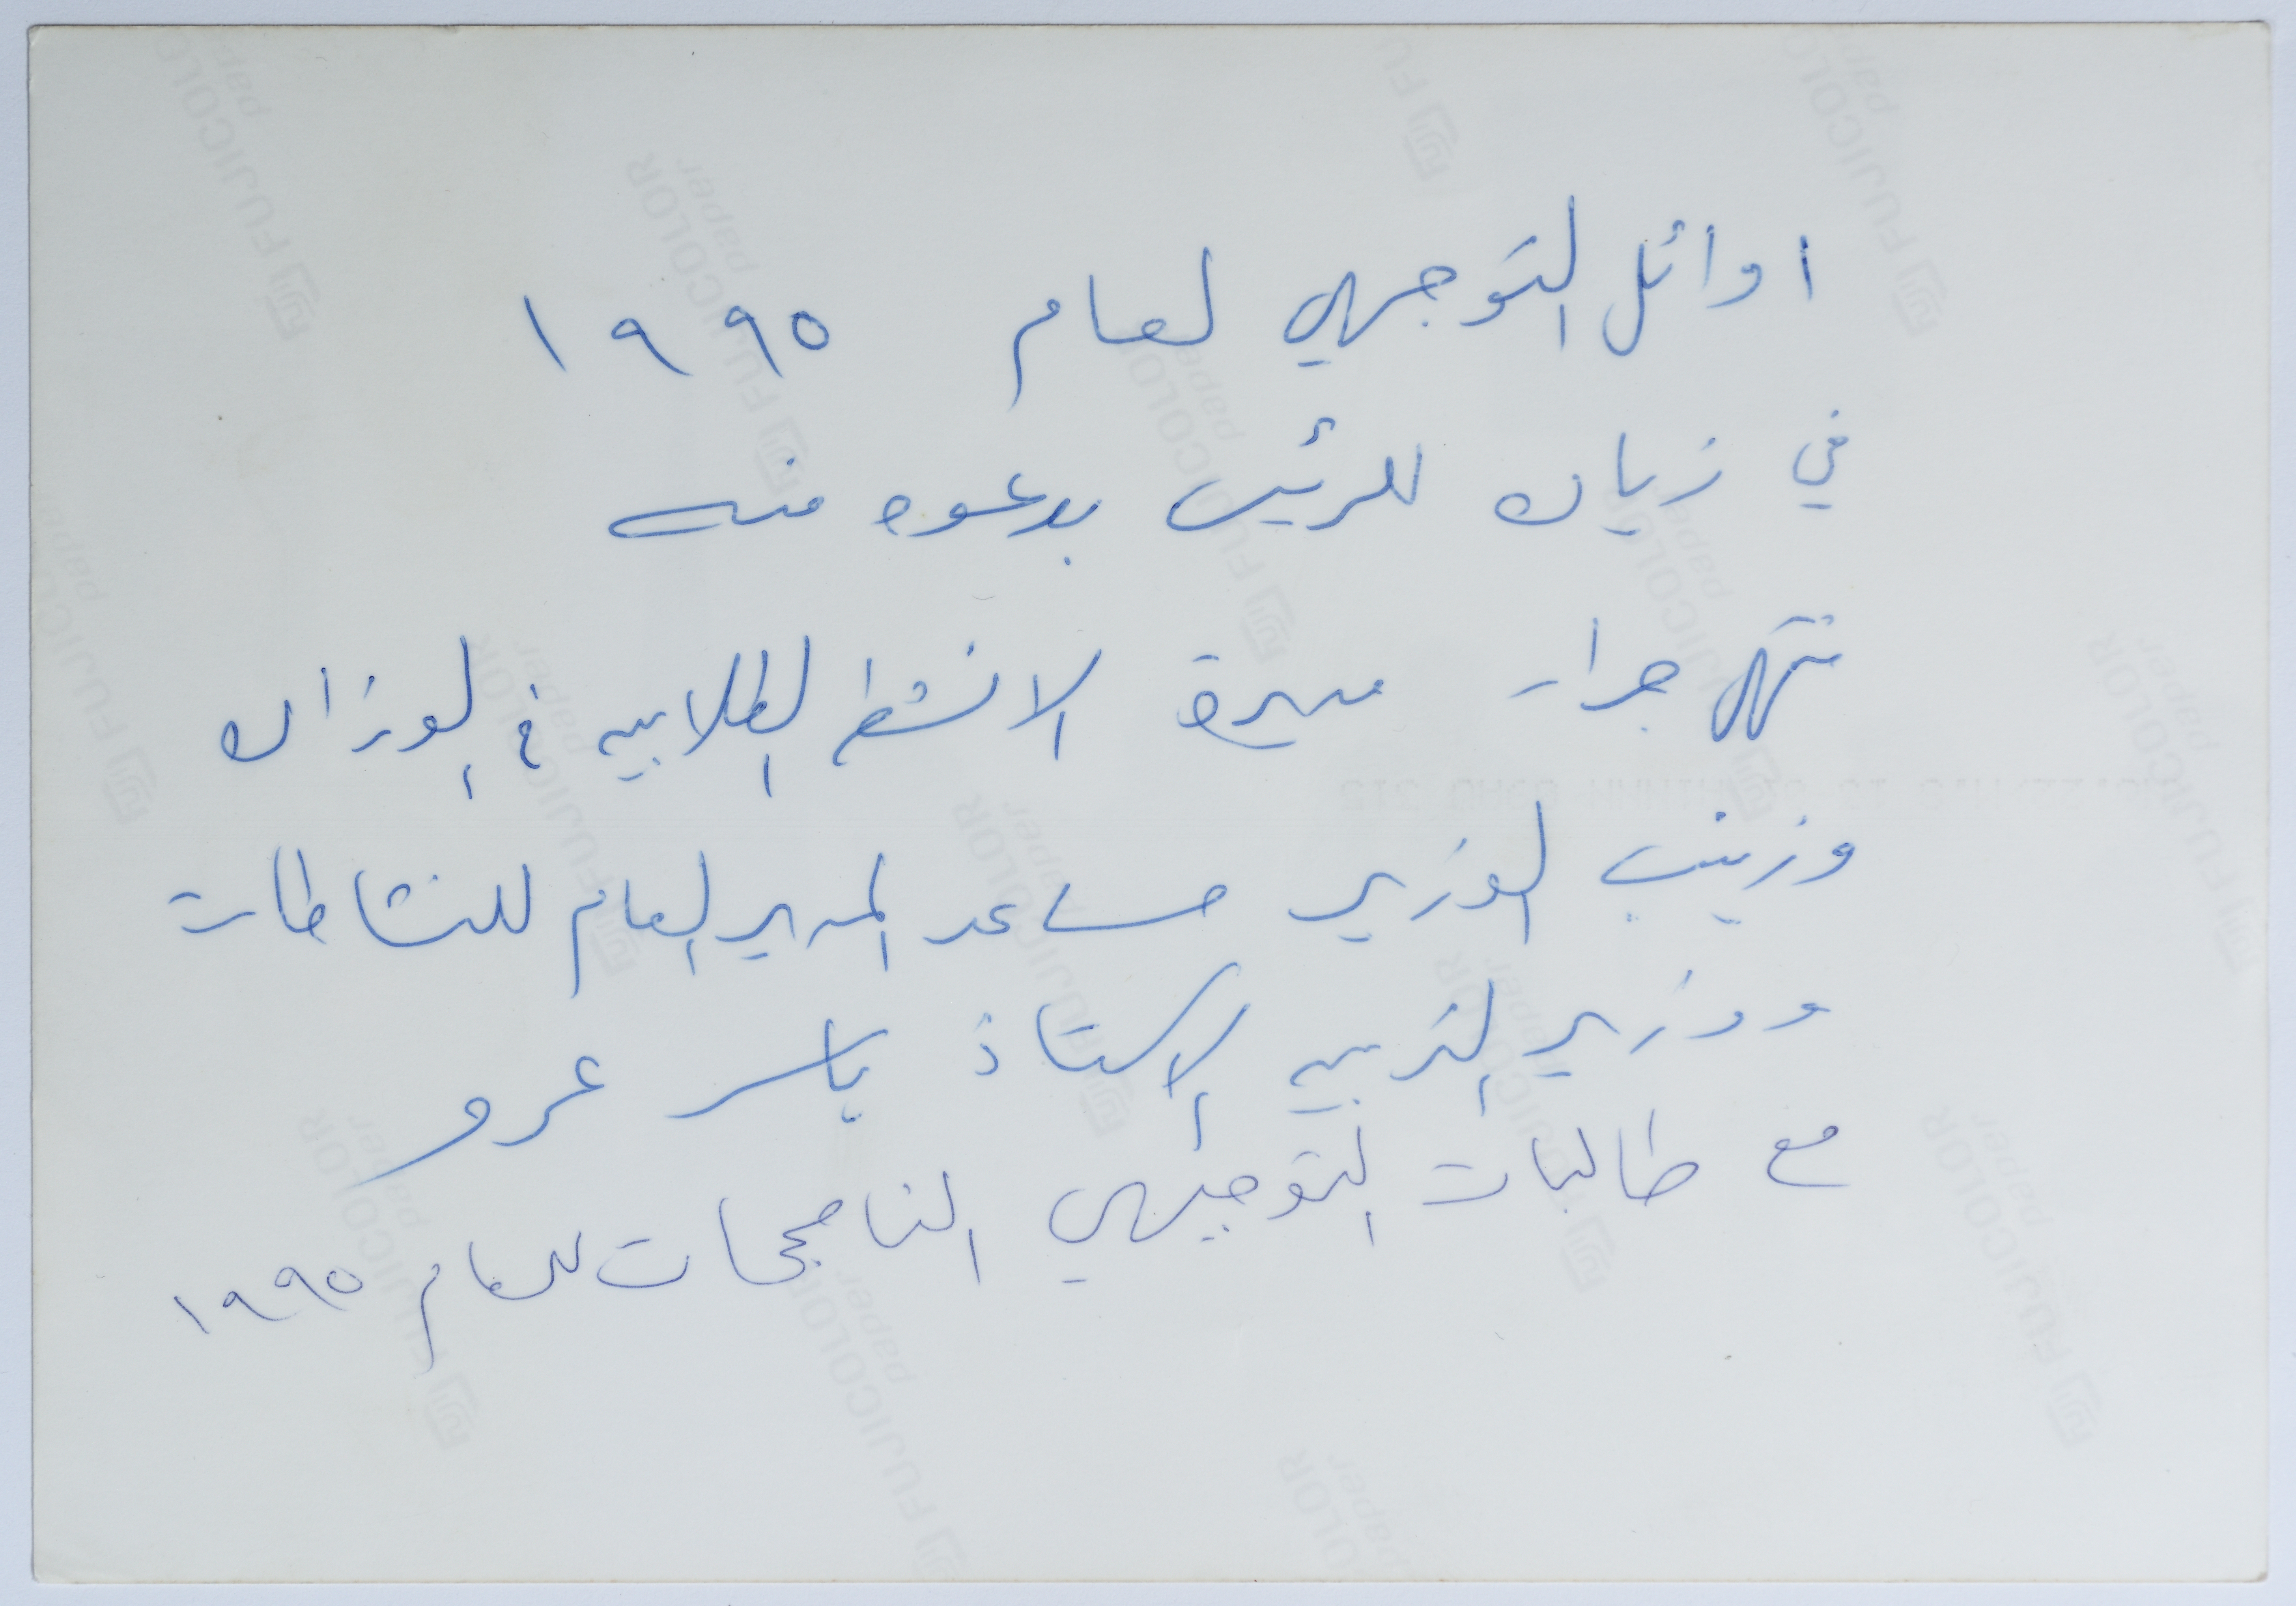 اوائل التوجيهي لعام ١٩٩٥
في زياره للرئيس بدعوه منه
سهى جرار مديرة الانشطه الطلابيه في الوزاره
وزينب الوزير مساعد المدير العام للنشاطات
ووزير التربيه الاستاذ ياسر عمرو
مع طالبات التوجيهي الناجحات للعام ١٩٩٥
FUJICOLOR
paper